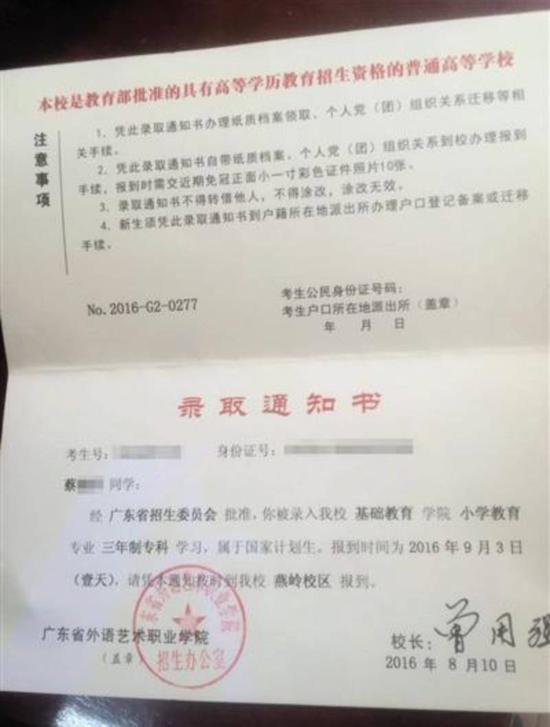 本校是教育部批准的具有高等学历教育招生资格的普通高等学校
注意事项
1、凭此录取通知书办理纸质档案领取、个人党（团）组织关系迁移等相
关手续。
2、凭此录取通知书自带纸质档案、个人党（团）组织关系到校办理报到
手续，报到时需交近期免冠正面小一寸彩色证件照片10张。
3、录取通知书不得转借他人，不得涂改，涂改无效。
4、新生须凭此录取通知书到户籍所在地派出所办理户口登记备案或迁移
手续。
No.2016-G2-0277
考生公民身份证号码：
考生户口所在地派出所（盖章）
年 月 日
录取通知书
考生号： 身份证号：
蔡 同学：
经 广东省招生委员会 批准，你被录入我校 基础教育 学院 小学教育
专业 三年制专科 学习，属于国家计划生。报到时间为 2016 年 9 月 3 日
(壹天)，请凭本通知按时到我校 燕岭校区 报到。
广东省外语艺术职业学院
（盖章）
招生办公室
校长：曾用强
2016 年 8 月 10 日